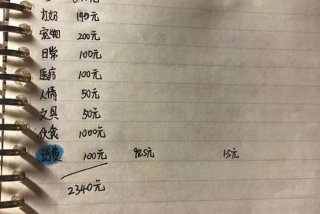 方妨 140元
宠物 200元
日常 100元
医疗 100元
人情 50元
文具 50元
伙食 1000元
话费 100元 98.5元 1.5元
2340元